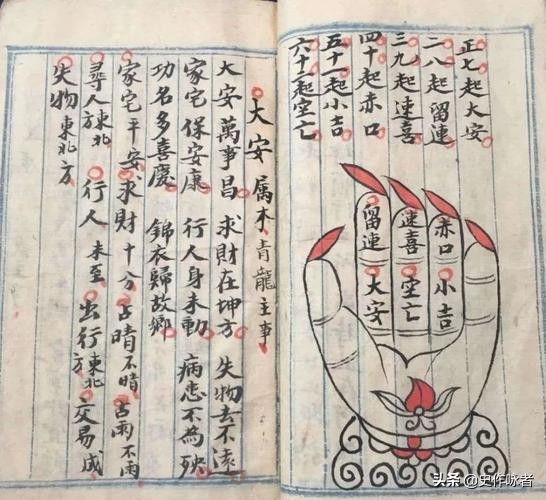 正七起大安
二八起留連
三九起速喜
四十起赤口
五十一起小吉
六十二起空亡
赤口
速喜
留連
小吉
空亡
大安
大安 属木 青龍主事
大安萬事昌 求財在坤方 失物去不遠
家宅保安康 行人身未動 病患不為殃
功名多喜慶 錦衣歸故鄉
家宅平安 求財十分 占晴不晴 占雨不雨
尋人東北方 行人未至 出行東北方 交易成
失物東北方
头条 @史作咏者